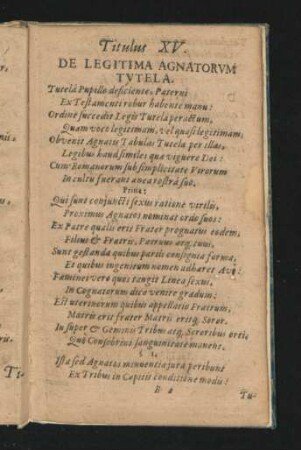 Titulus XV.
DE LEGITIMA AGNATORVM
TVTELA.
Tutelâ Pupillo deficiente, Paterni
Ex Testamenti robur habente manu:
Ordine succedit Legis Tutela peractum,
Quam voco legitimam, vel quasi legitimam,
Obvenit Agnatis Tabulas Tutela per illas,
Legibus haud similes quæ viguere Dei:
Cum Romanorum sub simplicitate Virorum
In cultu fuerant
Prin:
Qui sunt conjuncti sexus ratione virilis,
Proximus Agnatos nominat ordo suos:
Ex Patre qualis erit Frater prognatus eodem,
Filius & Fratris, Patruus atq; tuus,
Sunt gestanda quibus partis consigna forma,
Et quibus ingenuum nomen adhæret Avi:
Fæminei vero quos tangit Linea sexus,
In Cognatorum dico venire gradum:
Est uterinorum quibus appellatio Fratrum,
Matris erit frater Matris eritq; Soror,
In super & Geminis Tribus atq; Sororibus orti,
Quos Consobrios sanguinitate manent.
§ 1.
Ista sed Agnatos minuentia jura peribunt
Ex Tribus in Capitis conditione modis:
B 2
Tu-